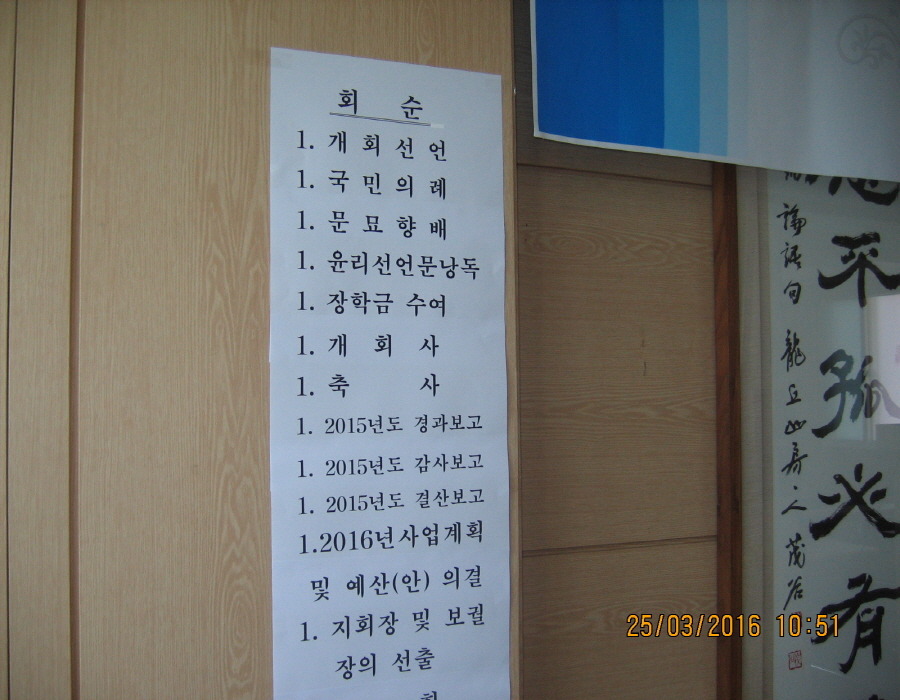 회 순
1. 개 회 선 언
1. 국 민 의 례
1. 문 묘 향 배
1. 윤리선언문낭독
1. 장학금 수여
1. 개 회 사
1. 축 사
1. 2015년도 경과보고
1. 2015년도 감사보고
1. 2015년도 결산보고
1.2016년사업계획
및 예산(안) 의결
1. 지회장 및 보궐
장의 선출
德不孤必有
論語句 龍丘山房人 茂谷
25/03/2016 10:51